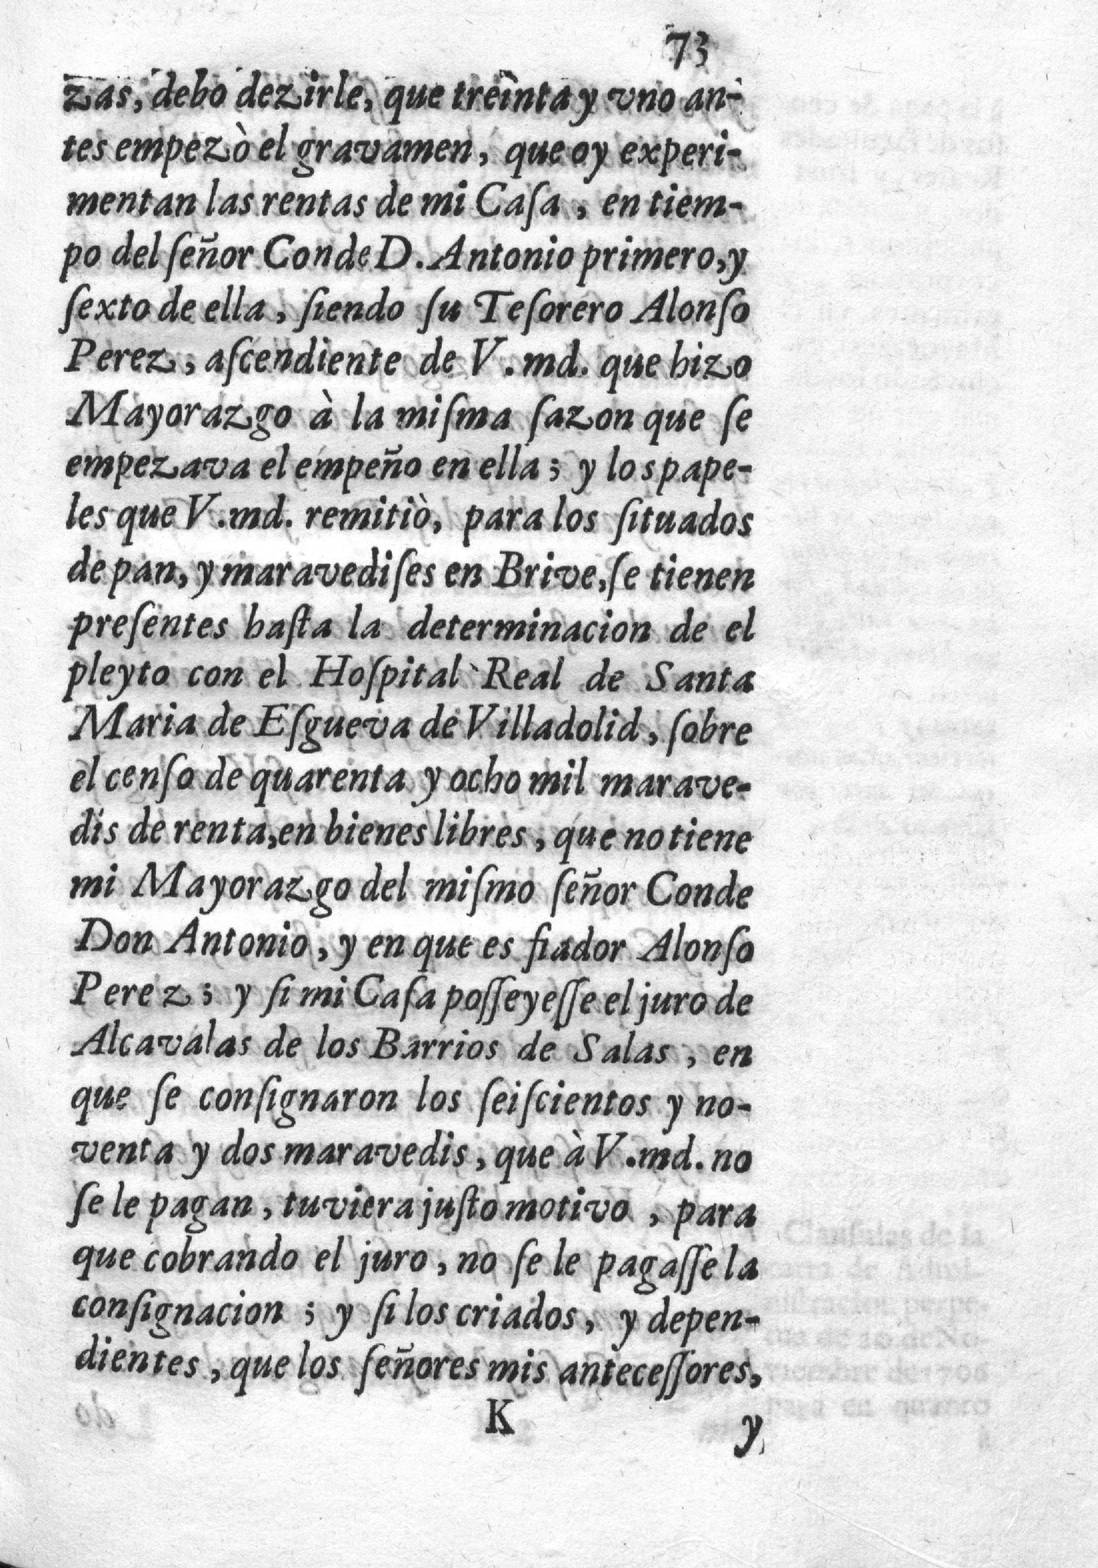 73
zas, debo dezirle, que treinta y vno an-
tes empezò el gravamen, que oy experi-
mentan las rentas de mi Caſa, en tiem-
po del ſeñor Conde D. Antonio primero, y
ſexto de ella, ſiendo ſu Teſorero Alonſo
Perez, aſcendiente de V.md. que hizo
Mayorazgo à la miſma ſazon que ſe
empezava el empeño en ella; y los pape-
les que V.md. remitiò, para los ſituados
de pan, y maravediſes en Brive, ſe tienen
preſentes haſta la determinacion de el
pleyto con el Hoſpital Real de Santa
Maria de Eſgueva de Villadolid, ſobre
el cenſo de quarenta y ocho mil marave-
dis de renta, en bienes libres, que no tiene
mi Mayorazgo del miſmo ſeñor Conde
Don Antonio, y en que es fiador Alonſo
Perez; y ſi mi Caſa poſſeyeſſe el juro de
Alcavalas de los Barrios de Salas, en
que ſe conſignaron los ſeiſcientos y no-
venta y dos maravedis, que à V.md. no
ſe le pagan, tuviera juſto motivo, para
que cobrando el juro, no ſe le pagaſſe la
conſignacion; y ſi los criados, y depen-
dientes, que los ſeñores mis anteceſſores,
K y